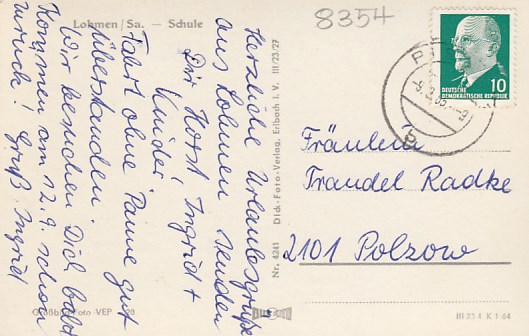 Lohmen/Sa. — Schule
8354
Herzliche Urlaubsgrüße
aus Lohmen senden
Dir Horst Ingrid +
Kinder.
Fahrt ohne Panne gut
überstanden.
Wir besuchen Dich bald
Kommen am 12.9. schon
zurück! Gruß Ingrid
Großbild-Foto-VEP
Nr. 4241 Dick-Foto-Verlag, Erlbach i. V. III/23/27
DEUTSCHE
DEMOKRATISCHE REPUBLIK
10
Fräulein
Traudel Radke
2101 Polzow
III 23 4 K 1 64